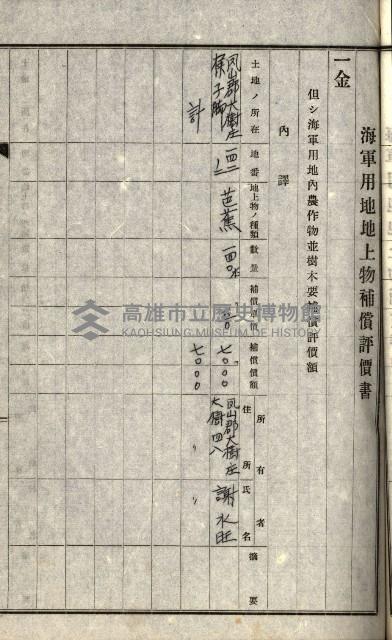 海軍用地地上物補償評價書
一金
但シ海軍用地內農作物並樹木要補償評價額
內譯
土地ノ所在
地番
地上物ノ種類
數量
補償單價
補償價額
所有者
住所
氏名
摘要
鳳山郡大樹庄
芭蕉
七〇〇〇
鳳山郡大樹庄
大樹四八
謝水旺
計
七〇〇〇
高雄市立歷史博物館
KAOHSIUNG MUSEUM OF HISTORY